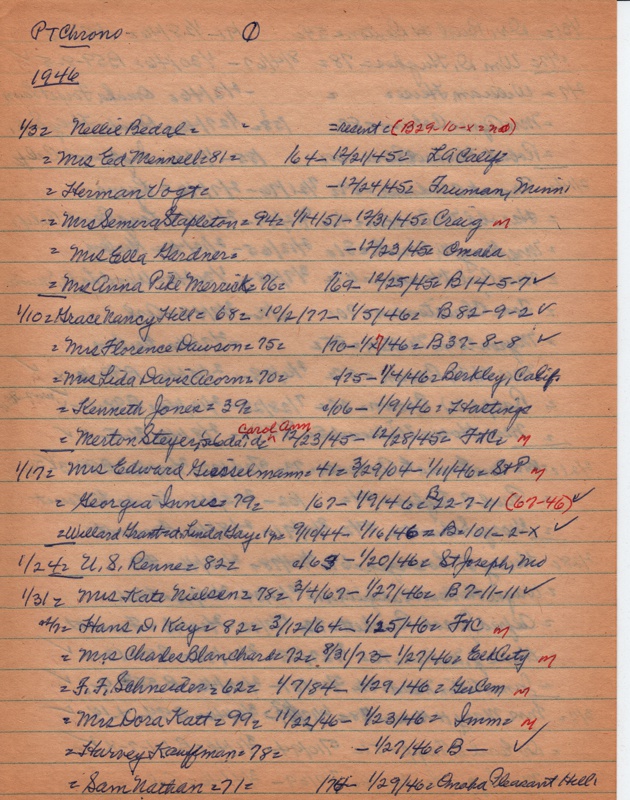 PT Chrono - ①
1946
1/3 = Nellie Bedal = = =resent = (B29-10-x = not)
= Mrs Ed Mennell = 81 = 164 - 12/21/45 = LA Calif
= Herman Vogt = - 12/24/45 = Truman, Minn
= Mrs Semira Stapleton = 94 = 1/14/51 - 12/31/45 = Craig m
= Mrs Ella Gardner = - 12/23/45 = Omaha
= Mrs Anna Pike Merrick = 76 = /69 - 12/25/45 = B 14-5-7 ✓
1/10 = Grace Nancy Hill = 68 = 10/2/77 - 1/5/46 = B 82-9-2 ✓
= Mrs Florence Dawson = 75 = /70 - 1/7/46 = B 37-8-8 ✓
= Mrs Lida Davis Acorn = 70 = c/75 - 1/4/46 = Berkley, Calif
= Kenneth Jones = 39 = c/06 - 1/9/46 = Hastings
= Merton Steyer, Carol Ann 12/23/45 - 12/28/45 = FtC = m
1/17 = Mrs Edward Giesselmann = 41 = 3/29/04 - 1/11/46 = StP m
= Georgia Innes = 79 = /67 - 1/9/46 = B 22-7-11 (67-46) ✓
= Willard Grant = d. Linda Gay = 1y = 9/10/44 - 1/16/46 = B = 101-2-X ✓
1/24 = U. S. Renne = 82 = c/63 - 1/20/46 = St Joseph, Mo
1/31 = Mrs Kate Nielsen = 78 = 3/4/67 - 1/27/46 = B 7-11-11 ✓
2/7 = Hans D. Kay = 82 = 3/12/64 - 1/25/46 = FtC m
= Mrs Charles Blanchard = 72 = 8/31/73 - 1/27/46 = Tek City m
= F. F. Schneider = 62 = 1/7/84 - 1/29/46 = Ger Cem m
= Mrs Dora Katt = 99 = 11/22/46 - 1/23/46 = Imm = m
= Harvey Kauffman = 78 = - 1/27/46 = B — ✓
= Sam Nathan = 71 = /74 - 1/29/46 = Omaha Pleasant Hill